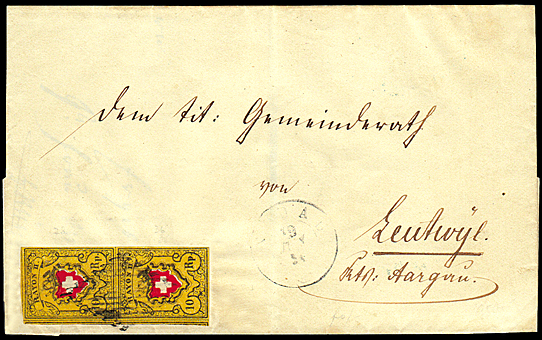 dem tit: Gemeinderath
von
Leutwyl.
Kts: Aargau.
RAYON II.
10 Rp.
RAYON II.
10 Rp.